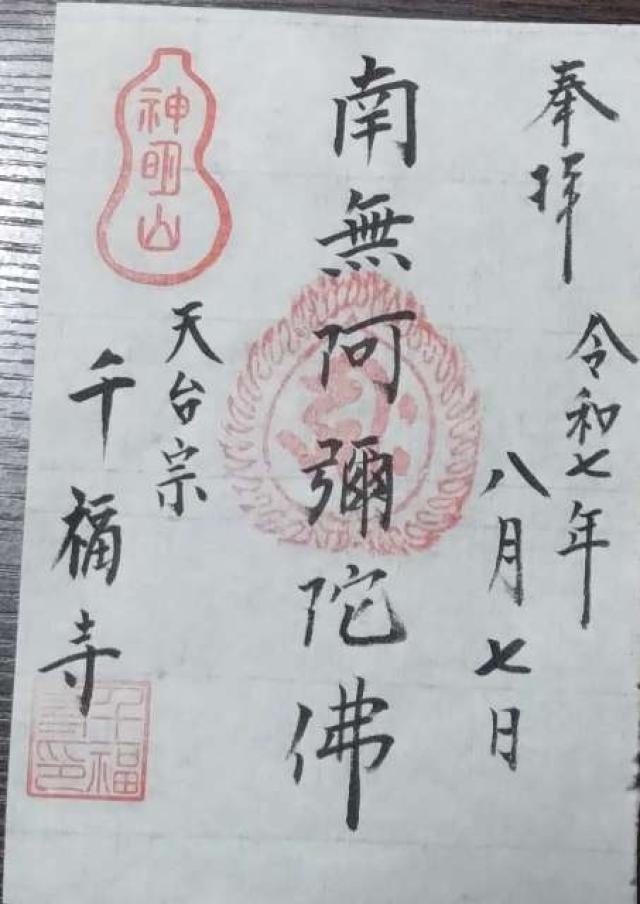 奉拝
令和七年
八月七日
南無阿彌陀佛
天台宗
千福寺
神明山
千福寺印